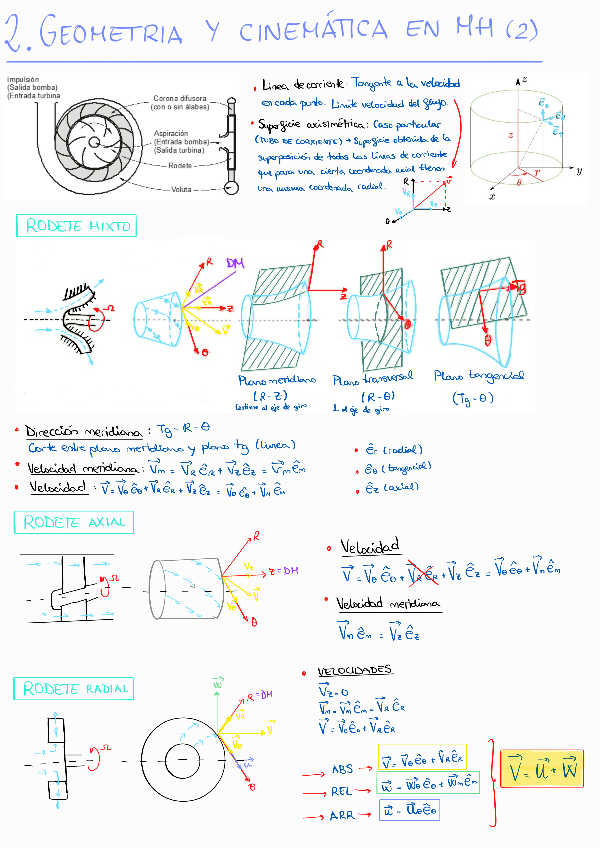 2. GEOMETRIA Y CINEMÁTICA EN MH (2)
Impulsión
(Salida bomba)
(Entrada turbina)
Corona difusora
(con o sin álabes)
Aspiración
(Entrada bomba)
(Salida turbina)
Rodete
Voluta
• Linea de corriente: Tangente a la velocidad
en cada punto. Limite velocidad del flujo.
• Superficie axisimétrica: Caso particular
(TUBO DE CORRIENTE) → Superficie obtenida de la
superposición de todas las lineas de corriente
que para una cierta coordenada axial tienen
una misma coordenada radial.
z
y
x
θ
r
R
Z
θ
RODETE MIXTO
Ω
R
DM
Z
θ
R
Z
R
θ
Tg
θ
Plano meridiano
(R-Z)
Contiene al eje de giro
Plano transversal
(R-θ)
⊥ al eje de giro
Plano tangencial
(Tg-θ)
• Dirección meridiana: Tg - R - θ
Corte entre plano meridiano y plano tg (linea)
• Velocidad meridiana: V⃗m = V⃗R êR + V⃗z êz = V⃗m êm
• Velocidad: V⃗ = V⃗θ êθ + V⃗R êR + V⃗z êz = V⃗θ êθ + V⃗m êm
• êr (radial)
• êθ (tangencial)
• êz (axial)
RODETE AXIAL
Ω
R
Z = DM
θ
• Velocidad
V⃗ = V⃗θ êθ + V⃗R êR + V⃗z êz = V⃗θ êθ + V⃗m êm
• Velocidad meridiana
V⃗m êm = V⃗z êz
RODETE RADIAL
Ω
W⃗
R = DM
V⃗
u⃗
θ
• VELOCIDADES
V⃗z = 0
V⃗m = V⃗m êm = V⃗R êR
V⃗ = V⃗θ êθ + V⃗R êR
→ ABS → V⃗ = V⃗θ êθ + V⃗R êR
→ REL → w⃗ = W⃗θ êθ + W⃗m êm
→ ARR → u⃗ = U⃗θ êθ
V⃗ = u⃗ + W⃗